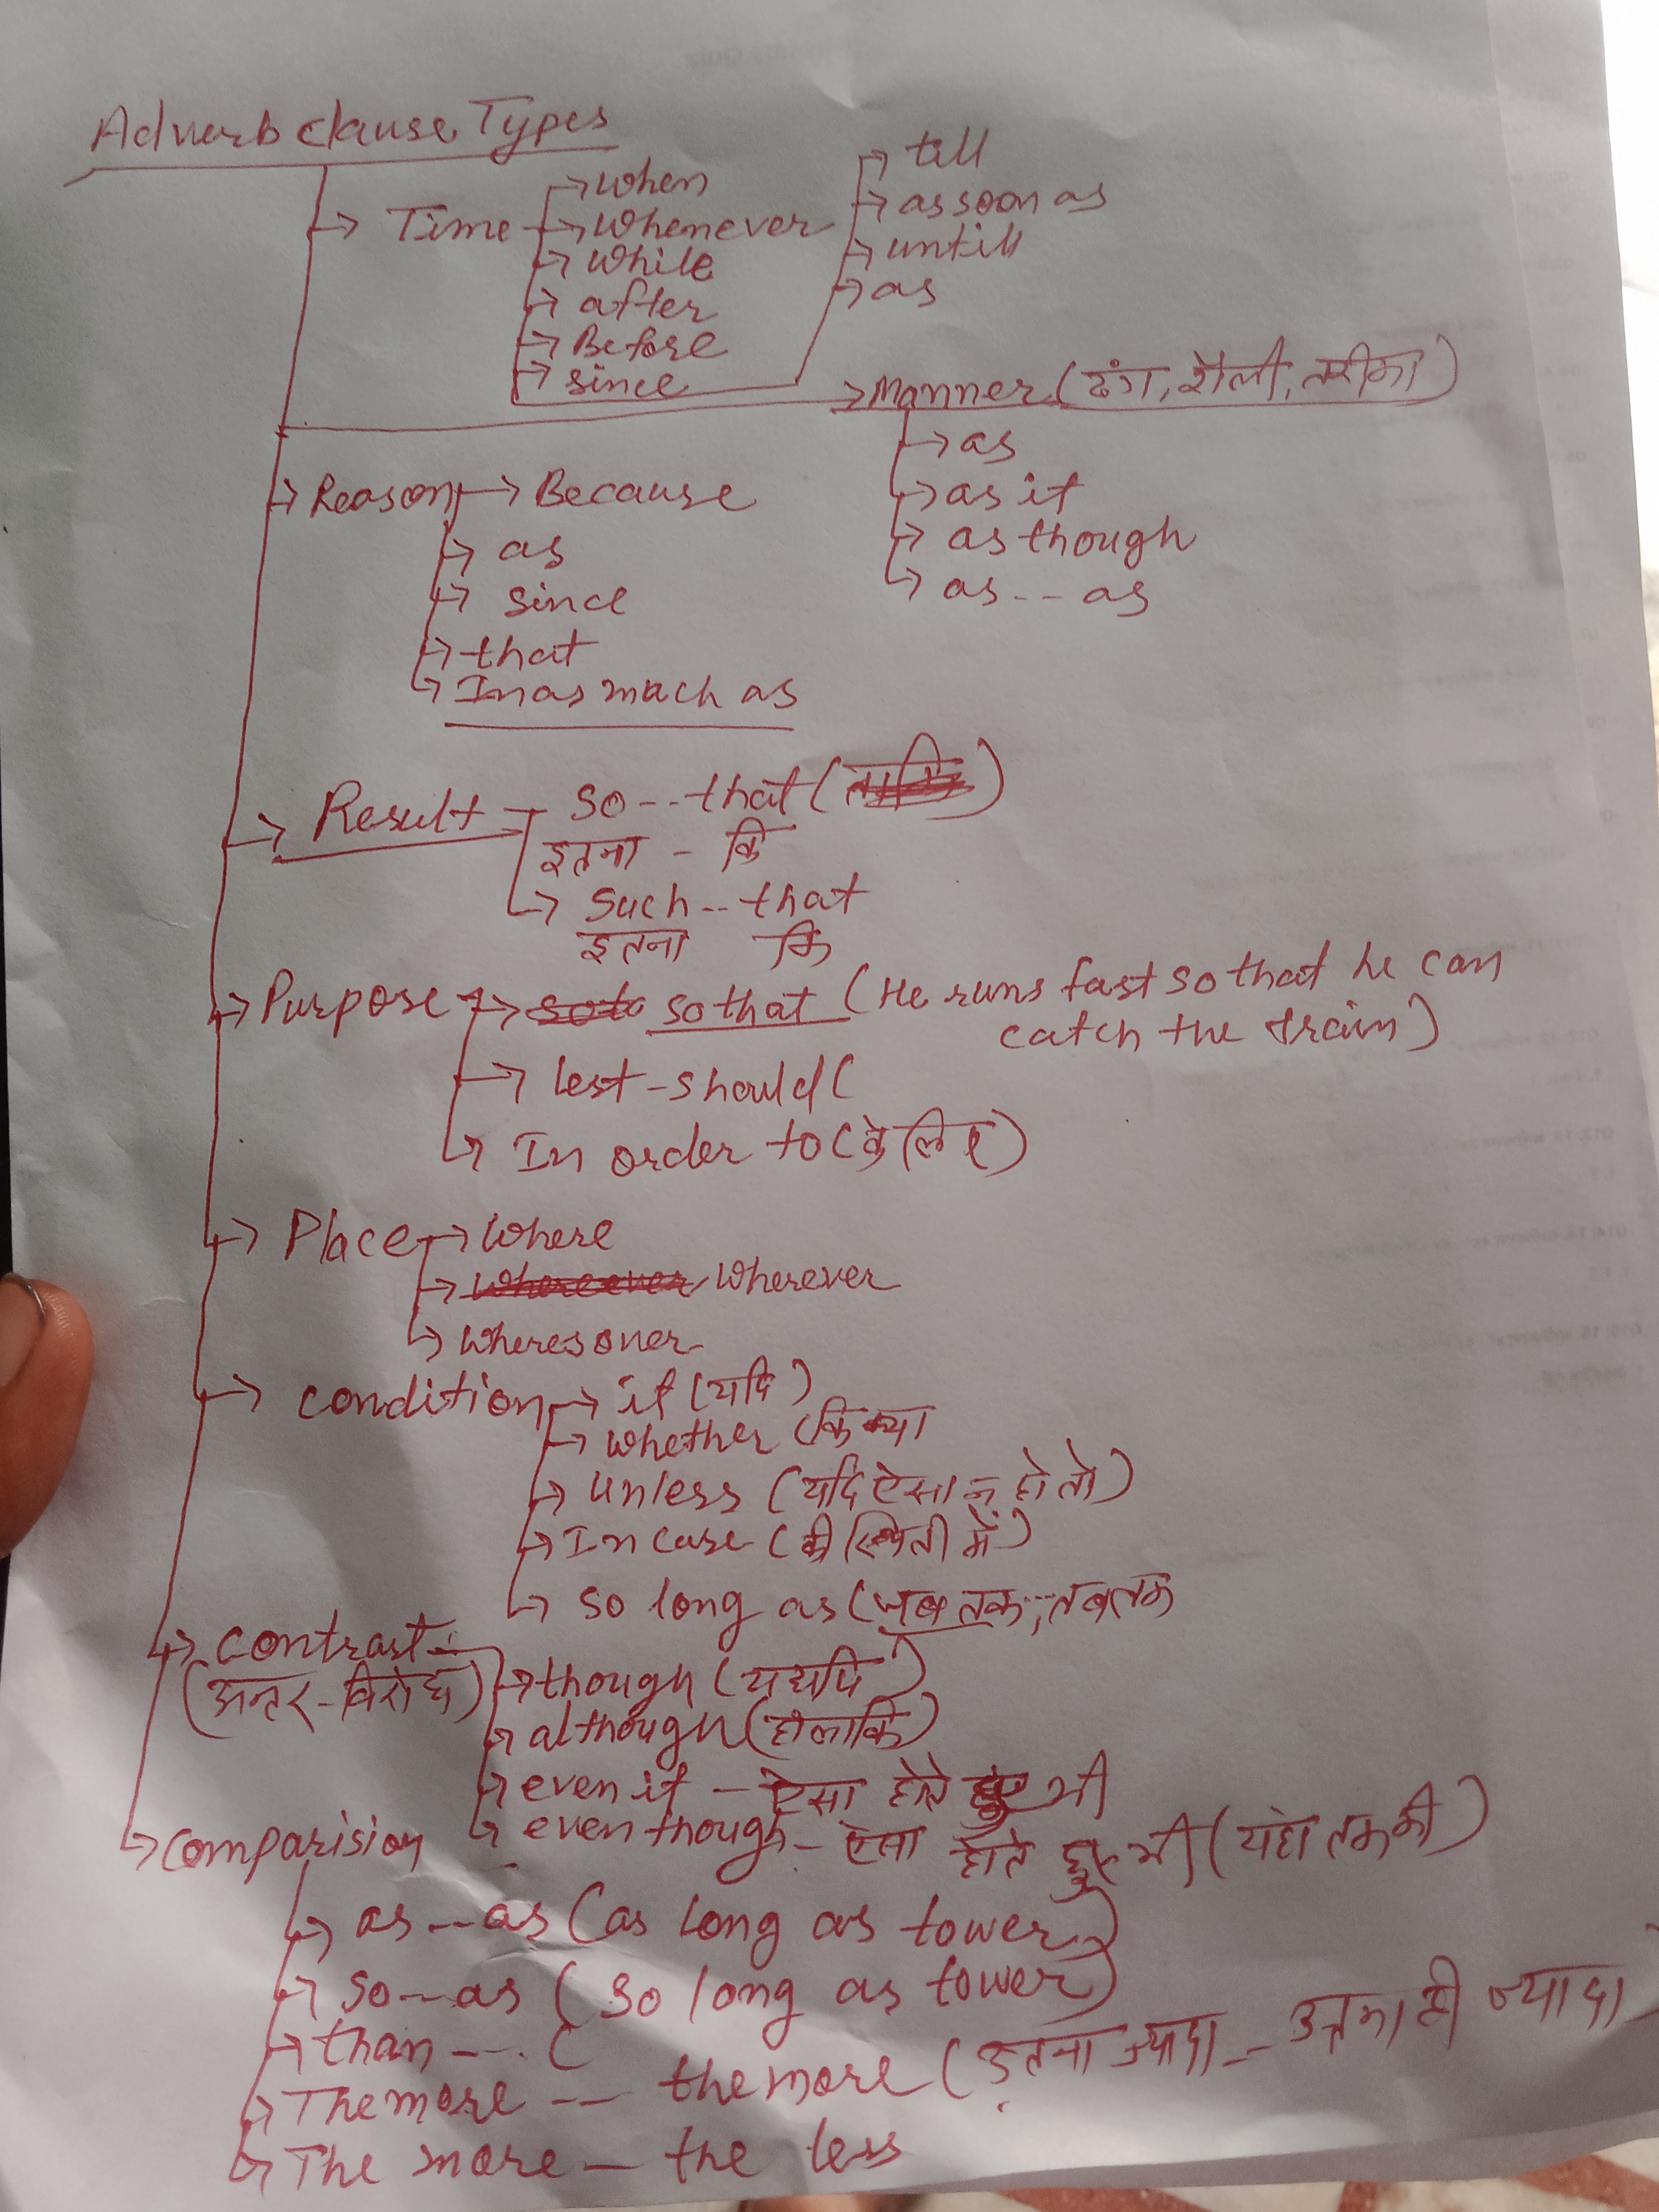 Adverb clause Types
Time
when
Whenever
While
after
Before
since
till
as soon as
untill
as
Manner (ढंग, शैली, तरीका)
as
as if
as though
as -- as
Reason
Because
as
since
that
In as much as
Result
so -- that
इतना - कि
Such -- that
इतना कि
Purpose
so that (He runs fast so that he can
catch the train)
lest - should (
In order to (के लिए)
Place
Where
Wherever
Wheresover
condition
if (यदि)
whether (कि क्या
unless (यदि ऐसा न हो तो)
In case (की स्थिती में)
so long as (जब तक, तबतक
contrast
(अन्तर - विरोध)
though (यद्यपि)
although (हालाकि)
even if - ऐसा होते हुए भी
even though - ऐसा होते हुए भी (यहा तक की)
comparision
as -- as (as long as tower)
so -- as (so long as tower)
than --- (
The more --- the more (इतना ज्यादा -- उतना ही ज्यादा
The more - the less